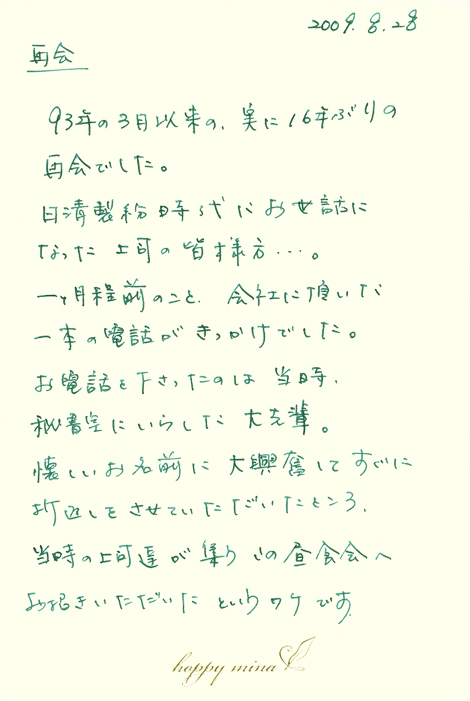 2009.8.28
再会
93年の3月以来の、実に16年ぶりの
再会でした。
日清製粉時代にお世話に
なった上司の皆様方…。
一ヶ月程前のこと、会社に頂いた
一本の電話がきっかけでした。
お電話を下さったのは当時、
秘書室にいらした大先輩。
懐しいお名前に大興奮してすぐに
お返しをさせていただいたところ、
当時の上司達が集うこの昼食会へ
お招きいただいたというワケです
happy mina